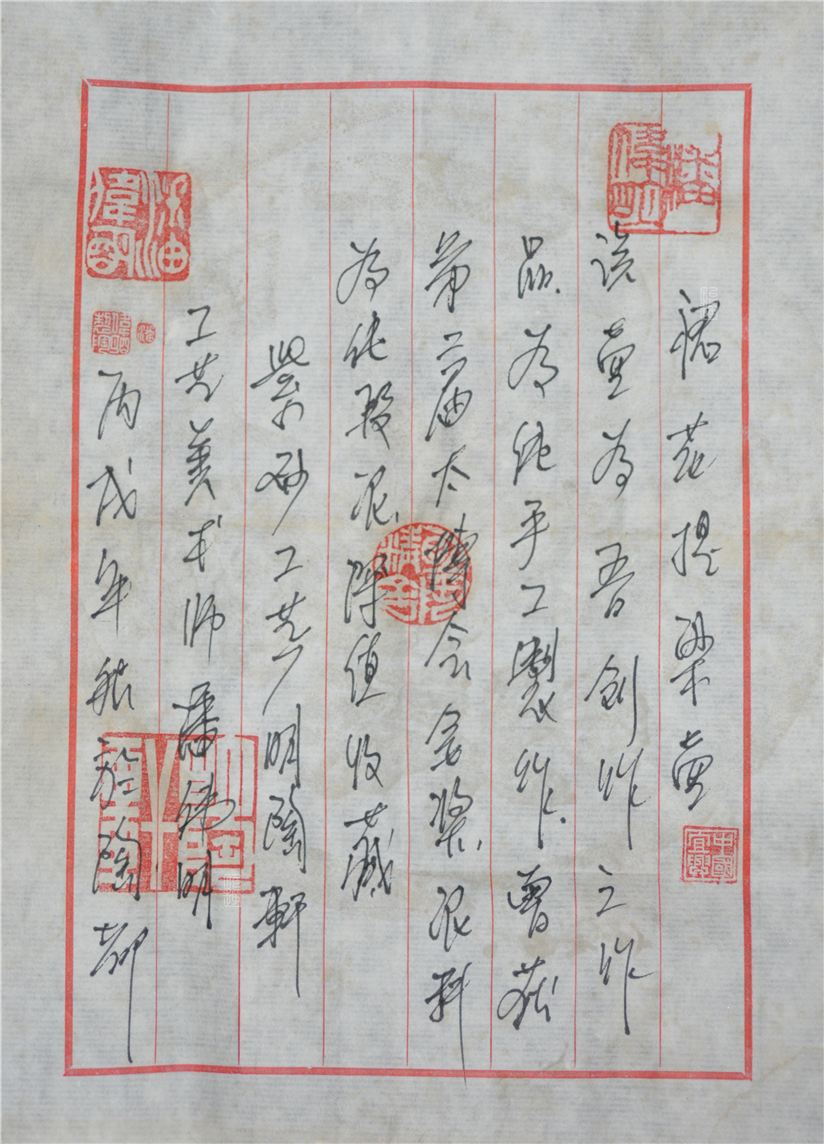 裙花提梁壶
该壶为吾创作之作
品.为纯手工製作.曾获
第二届太博会金奖.泥料
为化段泥.珍值收藏
紫砂工艺厂明陶轩
工艺美术师潘伟明
丙戌年秋於陶都
中國宜興